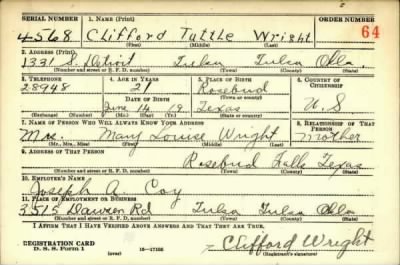 SERIAL NUMBER 1. NAME (Print) ORDER NUMBER
4568 Clifford Tuttle Wright 64
(First) (Middle) (Last)
2. ADDRESS (Print)
1331 S. Detroit Tulsa Tulsa Okla.
(Number and street or R. F. D. number) (Town) (County) (State)
3. TELEPHONE 4. AGE IN YEARS 5. PLACE OF BIRTH 6. COUNTRY OF CITIZENSHIP
28948 21 Rosebud
DATE OF BIRTH (Town or county)
June 14 19 Texas U.S
(Exchange) (Number) (Mo.) (Day) (Yr.) (State or country)
7. NAME OF PERSON WHO WILL ALWAYS KNOW YOUR ADDRESS 8. RELATIONSHIP OF THAT PERSON
Mrs. Mary Louise Wright Mother
(Mr., Mrs., Miss) (First) (Middle) (Last)
9. ADDRESS OF THAT PERSON
Rosebud Falls Texas
(Number and street or R. F. D. number) (Town) (County) (State)
10. EMPLOYER'S NAME
Joseph A. Coy
11. PLACE OF EMPLOYMENT OR BUSINESS
3515 Dawson Rd Tulsa Tulsa Okla
(Number and street or R. F. D. number) (Town) (County) (State)
I AFFIRM THAT I HAVE VERIFIED ABOVE ANSWERS AND THAT THEY ARE TRUE.
REGISTRATION CARD
D. S. S. Form 1 (over) Clifford Wright
(Registrant's signature)